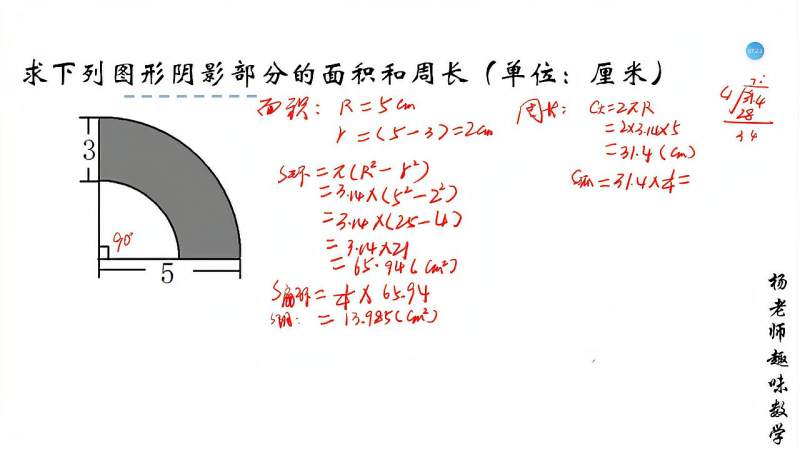 求下列图形阴影部分的面积和周长（单位：厘米）
3
90°
5
面积：R=5cm
r=(5-3)=2cm
S环=π(R²-r²)
=3.14×(5²-2²)
=3.14×(25-4)
=3.14×21
=65.94(cm²)
S扇环=¼×65.94
=13.985(cm²)
周长：C大=2πR
=2×3.14×5
=31.4(cm)
=31.4×¼=
7.
4
31.4
28
34
杨老师趣味数学